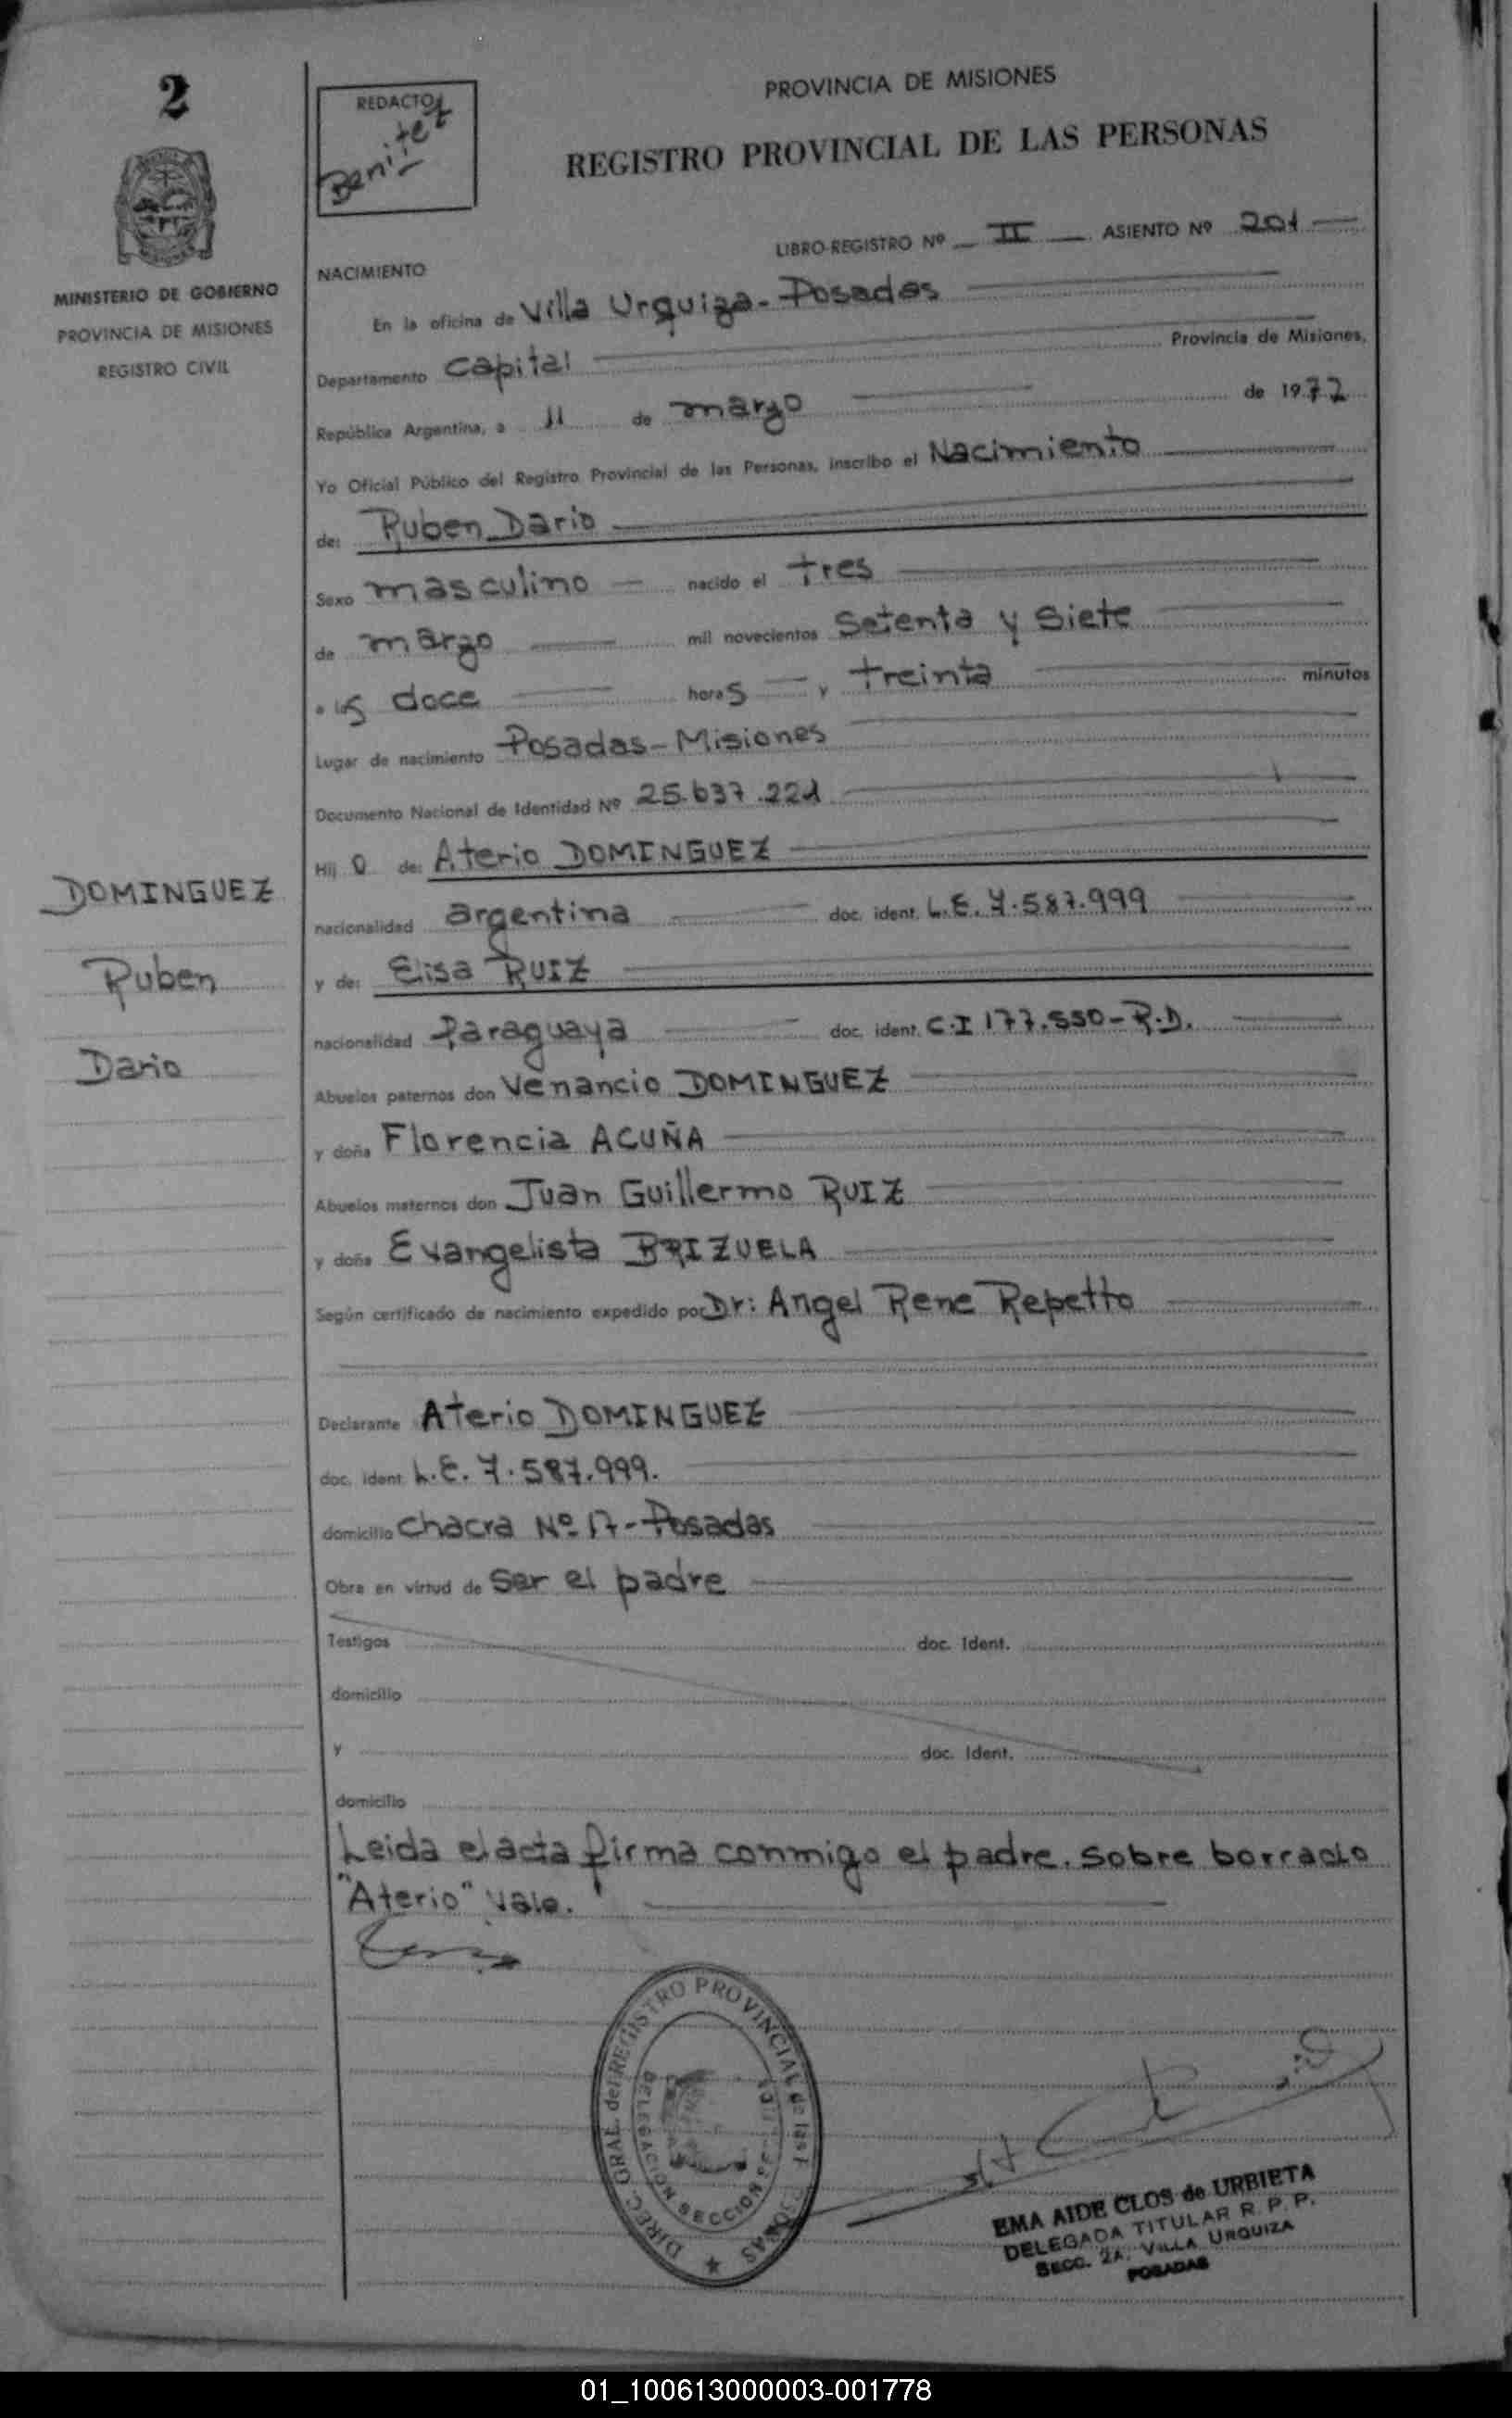 2
MINISTERIO DE GOBIERNO
PROVINCIA DE MISIONES
REGISTRO CIVIL
REDACTO
Benitez
PROVINCIA DE MISIONES
REGISTRO PROVINCIAL DE LAS PERSONAS
LIBRO-REGISTRO Nº II ASIENTO Nº 201
NACIMIENTO
En la oficina de Villa Urquiza-Posadas
Departamento Capital Provincia de Misiones,
República Argentina, a 11 de marzo de 1972
Yo Oficial Público del Registro Provincial de las Personas, inscribo el Nacimiento
de: Ruben Dario
Sexo masculino nacido el tres
de marzo mil novecientos Setenta y Siete
a las doce horas y treinta minutos
Lugar de nacimiento Posadas-Misiones
Documento Nacional de Identidad Nº 25.637.221
Hijo de: Aterio DOMINGUEZ
nacionalidad argentina doc. ident. L.E. 7.587.999
y de: Elisa RUIZ
nacionalidad Paraguaya doc. ident. C.I 177.550-R.D.
Abuelos paternos don Venancio DOMINGUEZ
y doña Florencia ACUÑA
Abuelos maternos don Juan Guillermo RUIZ
y doña Evangelista BRIZUELA
Según certificado de nacimiento expedido por Dr: Angel Rene Repetto
Declarante Aterio DOMINGUEZ
doc. ident. L.E. 7.587.999.
domicilio Chacra Nº 17-Posadas
Obra en virtud de Ser el padre
Testigos doc. Ident.
domicilio
y doc. Ident.
domicilio
Leida el acta firma conmigo el padre. Sobre borrado
"Aterio" Vale.
DOMINGUEZ
Ruben
Dario
DIREC. GRAL. del REGISTRO PROVINCIAL de las
DELEGACION SECCION
EMA AIDE CLOS de URBIETA
DELEGADA TITULAR R. P. P.
SECC. 2A. VILLA URQUIZA
POSADAS
01_100613000003-001778